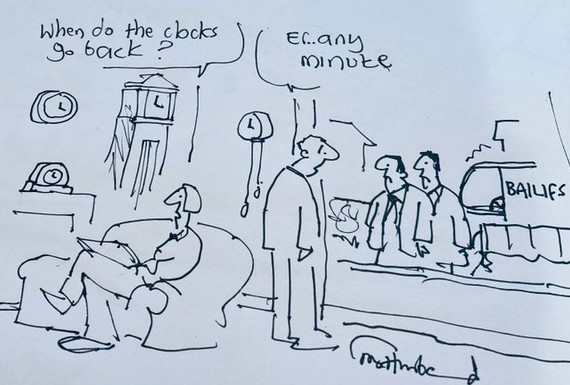 When do the clocks
go back?
Er..any
minute
BAILIFS